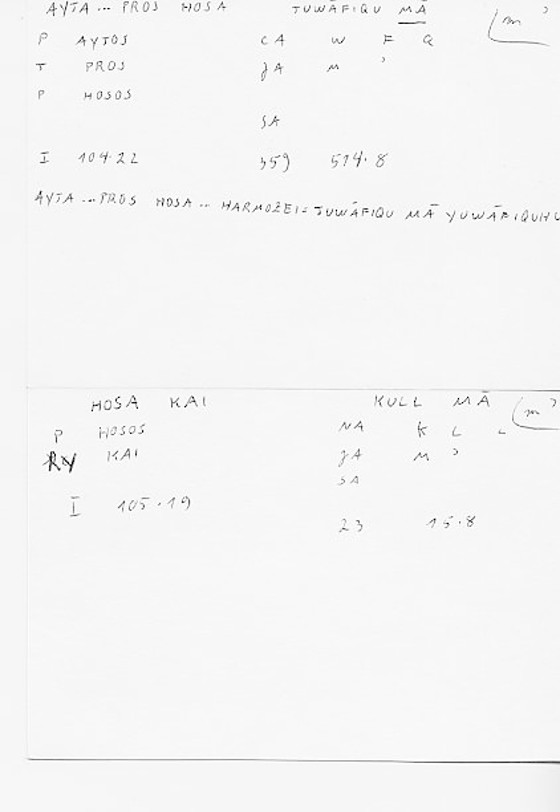 AYTA ... PROS HOSA TUWĀFIQU MĀ (m ʾ
P AYTOS CA W F Q
T PROS JA M ʾ
P HOSOS
SA
I 104.22 359 514.8
AYTA ... PROS HOSA ... HARMOZEI = TUWĀFIQU MĀ YUWĀFIQUHU
HOSA KAI KULL MĀ (m ʾ
P HOSOS NA K L L
RY KAI JA M ʾ
SA
I 105.19
23 15.8